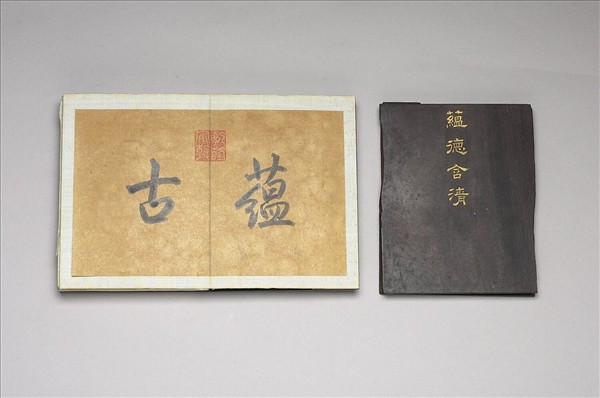 蘊古
蘊德含清